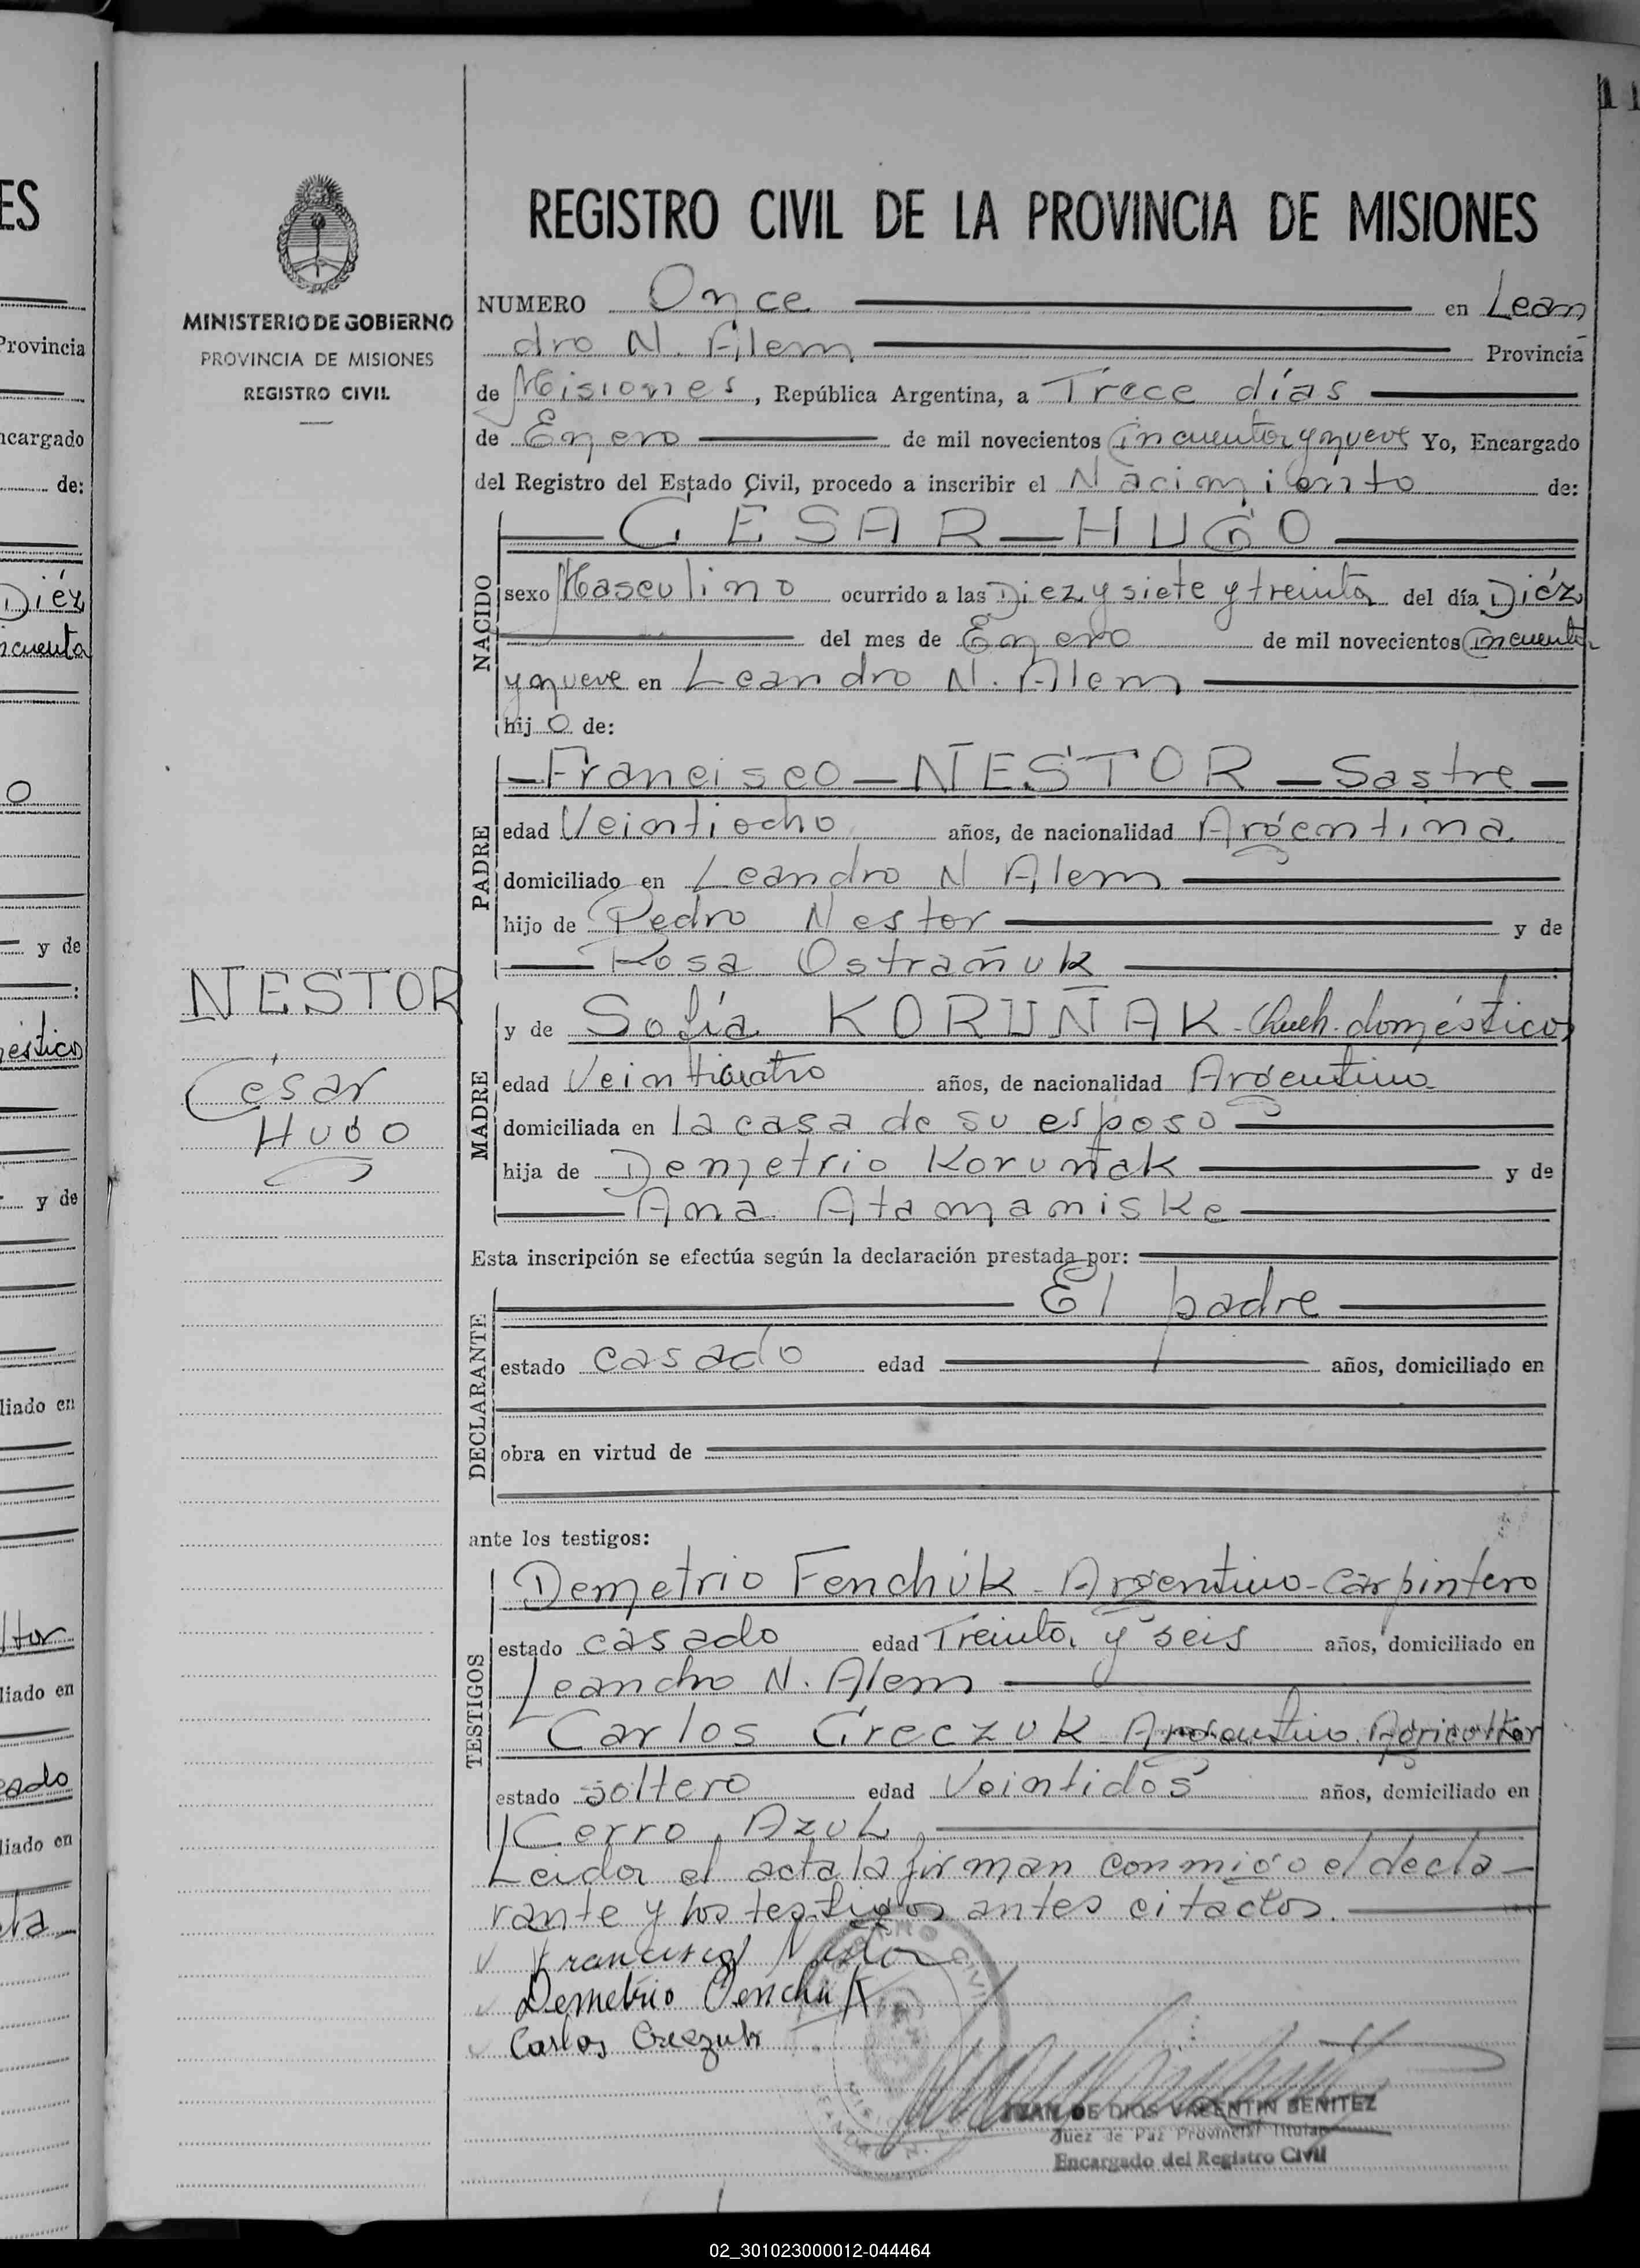 ES
Provincia
ncargado
de:
Diéz
ncuenta
O
y de
:
estico
y de
liado en
ltor
liado en
sado
liado en
ta
MINISTERIO DE GOBIERNO
PROVINCIA DE MISIONES
REGISTRO CIVIL
NESTOR
César
HUGO
11
REGISTRO CIVIL DE LA PROVINCIA DE MISIONES
NUMERO Once en Lean
dro N. Alem Provincia
de Misiones, República Argentina, a Trece días
de Enero de mil novecientos Cincuenta y nueve Yo, Encargado
del Registro del Estado Civil, procedo a inscribir el Nacimiento de:
CESAR — HUGO
NACIDO
sexo Masculino ocurrido a las Diez y siete y treinta del día Diéz
del mes de Enero de mil novecientos Cincuenta
y nueve en Leandro N. Alem
hijo de:
PADRE
Francisco — NESTOR — Sastre —
edad Veintiocho años, de nacionalidad Argentina
domiciliado en Leandro N Alem
hijo de Pedro Nestor y de
Rosa Ostrañuk
MADRE
y de Sofía KORUÑAK - Queh. doméstico
edad Veinticuatro años, de nacionalidad Argentina
domiciliada en la casa de su esposo
hija de Demetrio Koruñak y de
Ana Atamaniske
Esta inscripción se efectúa según la declaración prestada por:
DECLARANTE
El padre
estado casado edad años, domiciliado en
obra en virtud de
ante los testigos:
TESTIGOS
Demetrio Fenchuk - Argentino - Carpintero
estado casado edad Treinta y seis años, domiciliado en
Leandro N. Alem
Carlos Greczuk - Argentino. Agricultor
estado soltero edad Veintidos años, domiciliado en
Cerro Azul
Leida el acta la firman conmigo el decla-
rante y los testigos antes citados.
Francisco Nestor
Demetrio Fenchuk
Carlos Greczuk
JUAN DE DIOS VALENTIN BENITEZ
Juez de Paz Provincial Titular
Encargado del Registro Civil
02_301023000012-044464